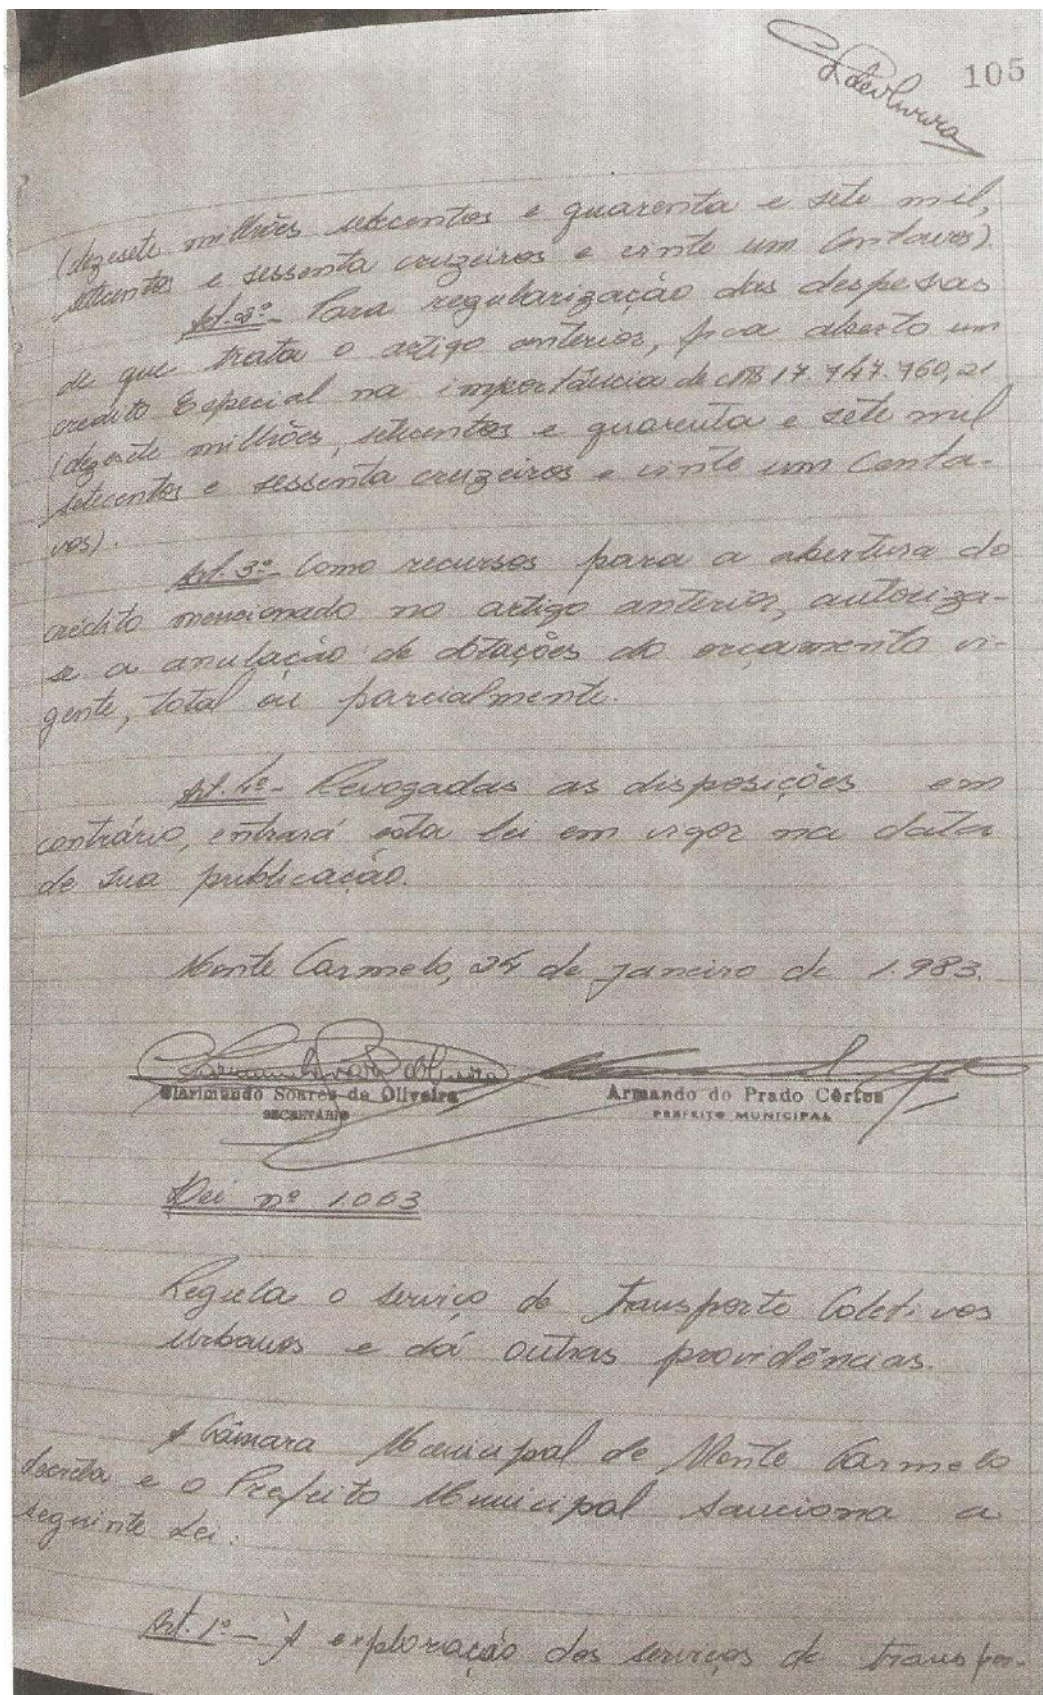 105
(dezesete milhões setecentos e quarenta e sete mil,
setecentos e sessenta cruzeiros e vinte um Centavos)
Art. 2º - Para regularização das despesas
de que trata o artigo anterior, fica aberto um
credito Especial na importância de CR$ 17.747.760,21
(dezesete milhões, setecentos e quarenta e sete mil
setecentos e sessenta cruzeiros e vinte um Centa-
vos).
Art. 3º - Como recursos para a abertura do
crédito mencionado no artigo anterior, autoriza-
se a anulação de dotações do orçamento vi-
gente, total ou parcialmente.
Art. 4º - Revogadas as disposições em
contrário, entrará esta lei em vigor na data
de sua publicação.
Monte Carmelo, 24 de janeiro de 1.983.
Clarimundo Soares de Oliveira
SECRETÁRIO
Armando do Prado Côrtes
PREFEITO MUNICIPAL
Lei nº 1.063
Regula o serviço de Transporte Coletivos
Urbanos e dá outras providências.
A Câmara Municipal de Monte Carmelo
decreta e o Prefeito Municipal sanciona a
seguinte Lei:
Art. 1º - A exploração dos serviços de transpor-